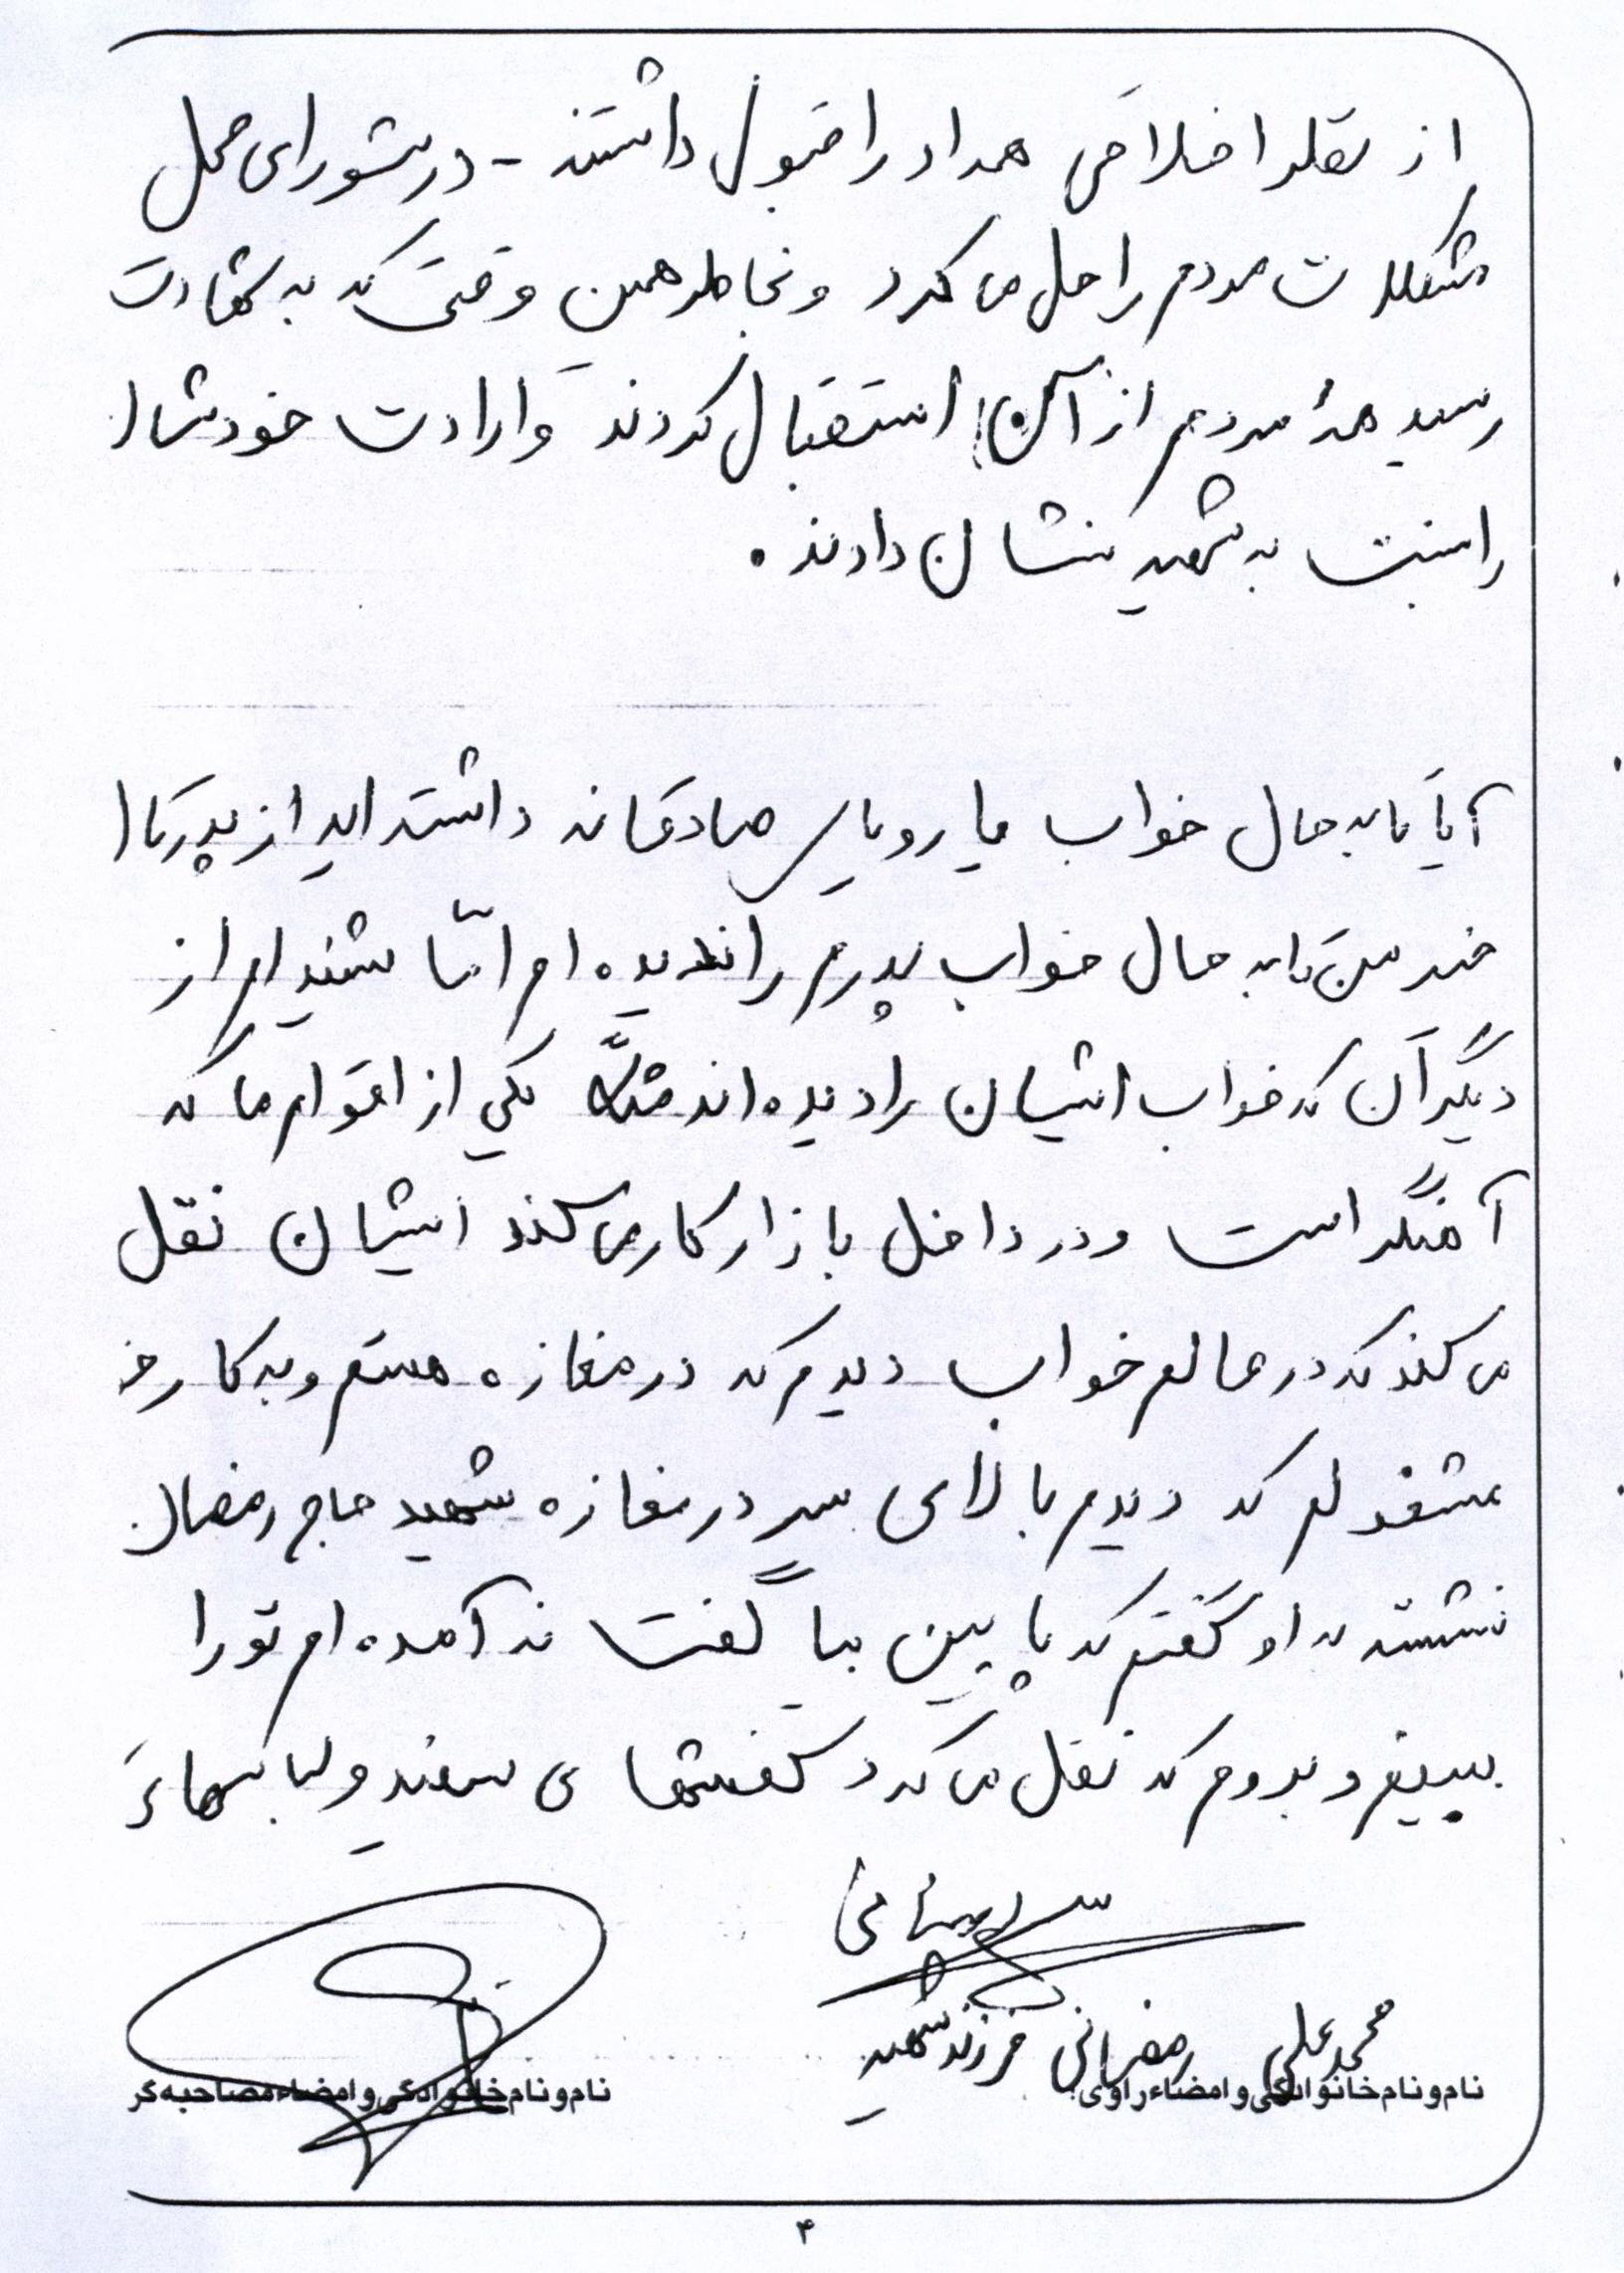 از نظر اخلاقی همه او را قبول داشتند - در شورای محل
مشکلات مردم را حل می کرد و بخاطر همین وقتی که به شهادت
رسید همۀ مردم از آن استقبال کردند و ارادت خودشان
را نسبت به شهید نشان دادند .
آیا تا به حال خواب یا رویای صادقانه داشته اید از پدرتان
خیر من تا به حال خواب پدرم را ندیده ام امّا شنیده ام از
دیگرآن که خواب ایشان را دیده اند مثلاً یکی از اقوام ما که
آهنگر است و در داخل بازار کار می کند ایشان نقل
می کند که در عالم خواب دیدم که در مغازه هستم و به کار خود
مشغولم که دیدم بالای سر در مغازه شهید حاج رمضان
نشسته به او گفتم که پایین بیا گفت نه آمده ام تو را
ببینم و بروم که نقل می کرد کفشهای سفید و لباسهای
محمد علی رمضانی فرزند شهید
نام و نام خانوادگی و امضاء راوی:
نام و نام خانوادگی و امضاء مصاحبه گر
۴